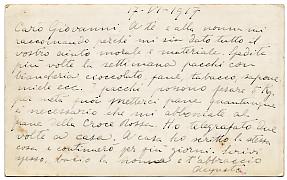 17-VI-1917
Caro Giovanni. A te e alla nonna mi
raccomando perchè mi sia dato tutto il
vostro aiuto morale e materiale. Spedite
più volte la settimana pacchi con
biancheria cioccolato, pane, tabacco, sapone,
miele ecc. pacchi possono pesare 5 Kg.
metà puoi metterci pane quantunque
è necessario che mi abboniate al
pane della Croce Rossa. Ho telegrafato due
volte a casa. A casa ho scritto la stessa
cosa e continuerò per più giorni. Scrivi
spesso. Bacio la nonna e t'abbraccio
Augusto